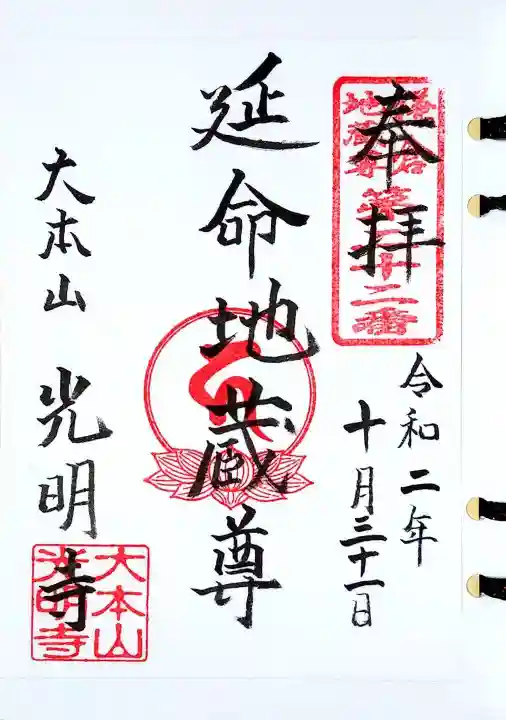 奉拝
鎌倉
地蔵尊
第二十二番
令和二年
十月三十一日
延命地蔵尊
大本山 光明寺
大本山
光明寺